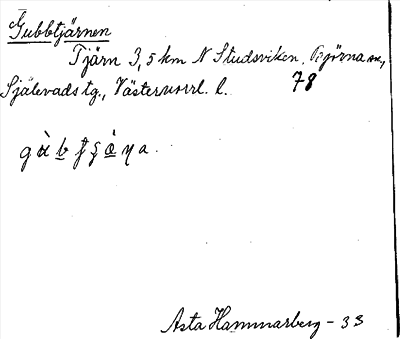 Gubbtjärnen
Tjärn 3,5 km N Studsviken, Björna sn,
Själevads tg., Västernorrl. l. 78
Asta Hammarberg - 33